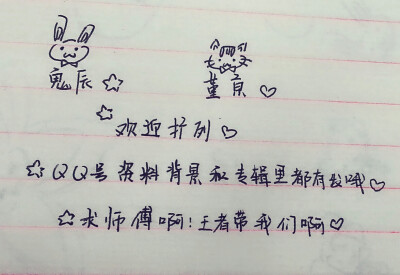 鬼辰☆ 董贞♡
☆欢迎扩列♡
☆QQ号资料背景和专辑里都有发哦♡
☆求师傅啊!王者带我们啊♡